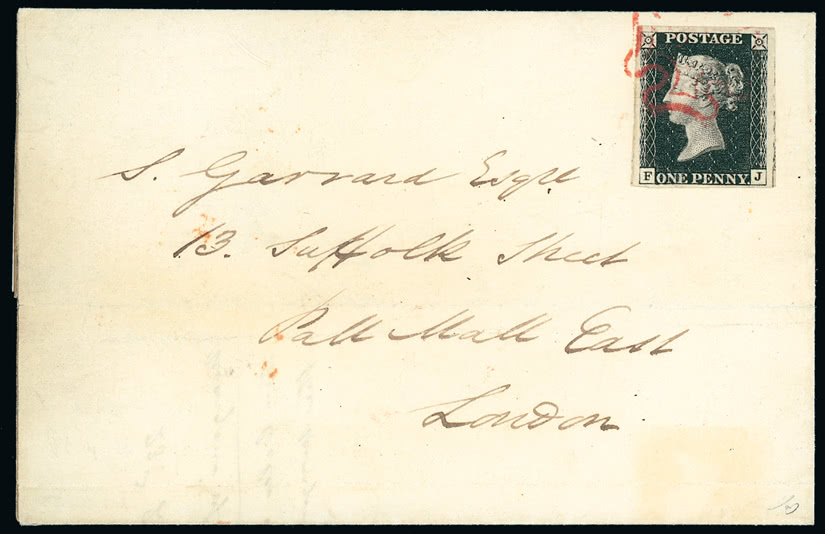 POSTAGE
F ONE PENNY J
S. Garrard Esqre
13. Suffolk Street
Pall Mall East
London